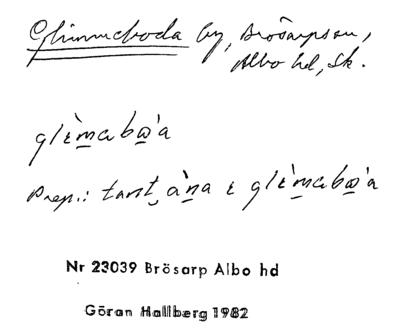 Glimmeboda by, Brösarps sn,
Albo hd, Sk.
glὶma bω'a
Prep.: tanst, àna ε glὶma bω'a
Nr 23039 Brösarp Albo hd
Göran Hallberg 1982